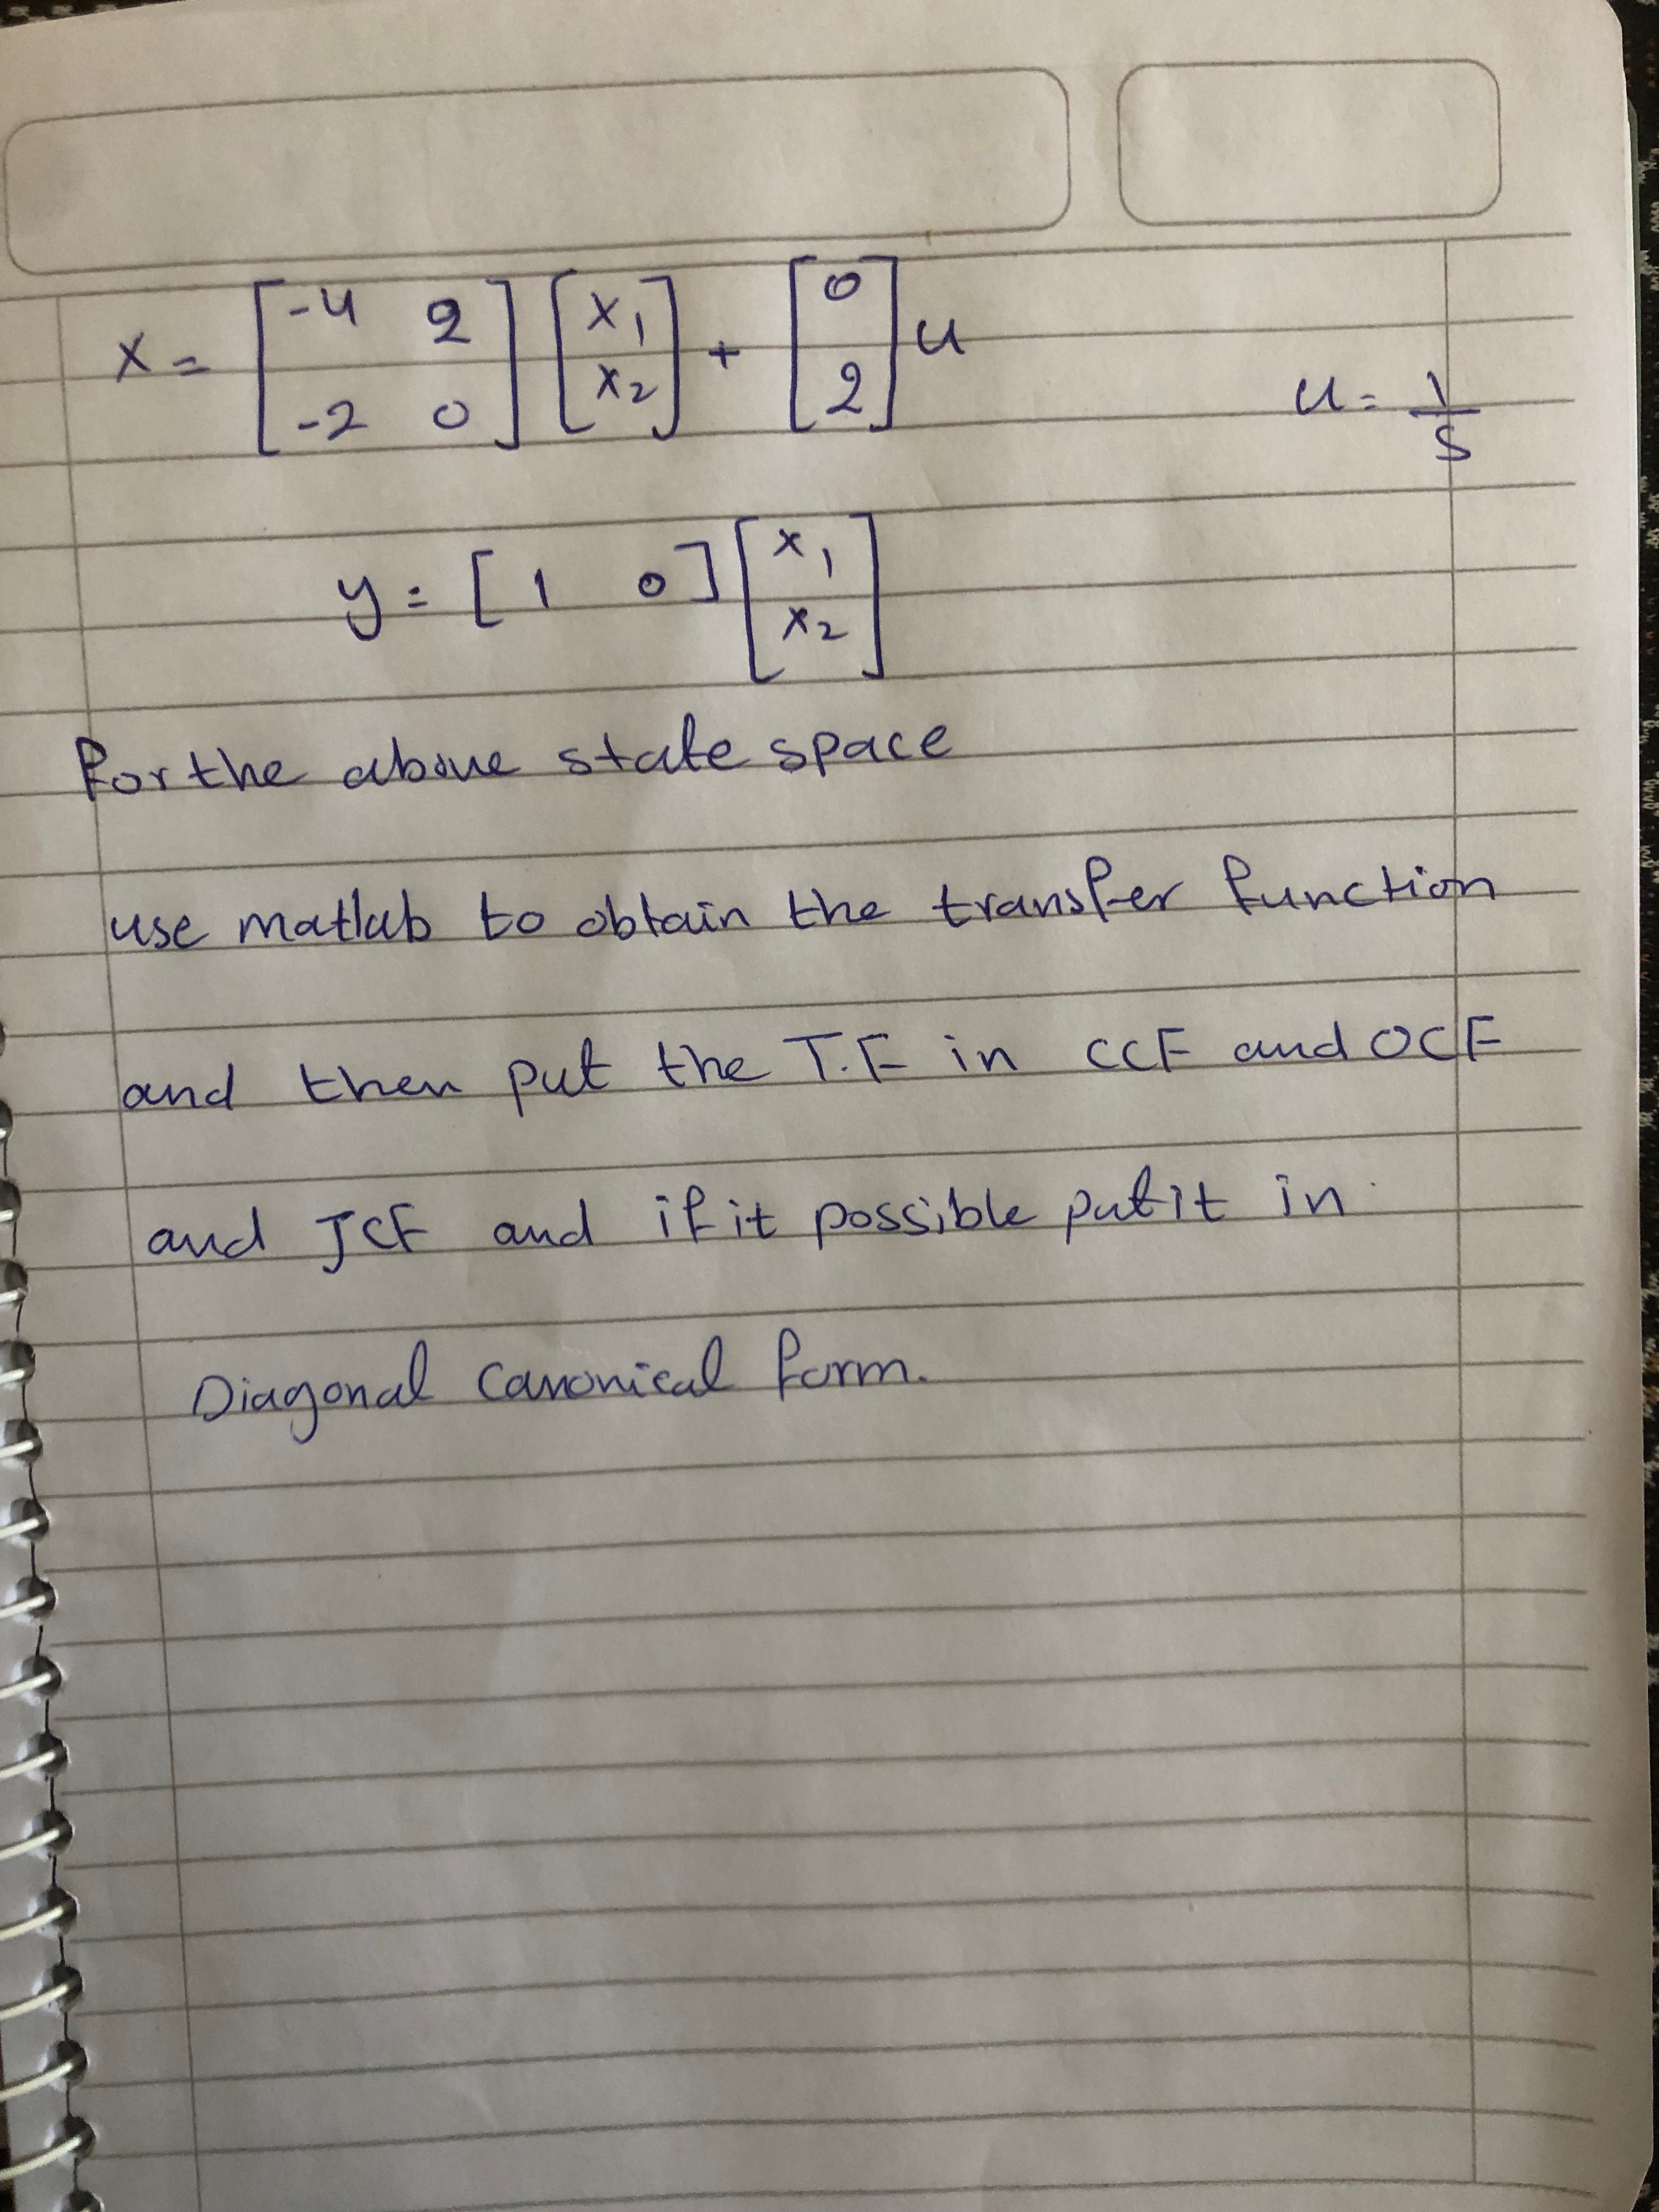 x = [ -4 2 ; -2 0 ] [ x1 ; x2 ] + [ 0 ; 2 ] u u = 1/s
y = [ 1 0 ] [ x1 ; x2 ]
For the above state space
use matlab to obtain the transfer function
and then put the T.F in CCF and OCF
and JCF and if it possible put it in
Diagonal canonical form.